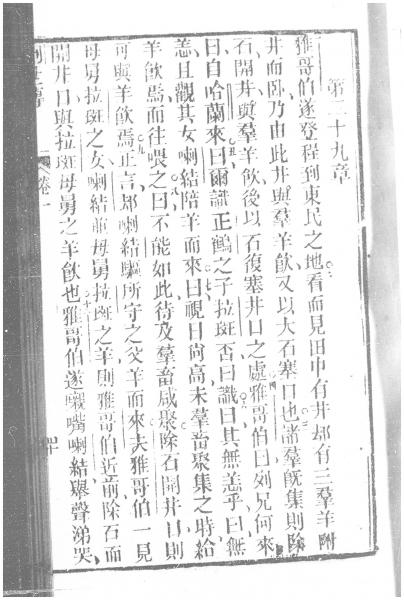 第二十九章
雅哥伯遂登程到東民之地看而見田中有井却有三羣羊附
井而臥乃由此井與羣羊飲又以大石塞口也諸羣旣集則除
石開井與羣羊飲後以石復塞井口之處雅哥伯曰列兄何來
曰自哈蘭來曰爾識正鶴之子拉斑否曰識曰其無恙乎曰無
恙且觀其女喇結陪羊而來曰視日尚高未羣畜聚集之時給
羊飲焉而往喂之曰不能如此待及羣畜咸聚除石開井口則
可與羊飲焉正言却喇結驅所守之父羊而來夫雅哥伯一見
母舅拉斑之女喇結並母舅拉斑之羊則雅哥伯近前除石而
開井口與拉斑母舅之羊飲也雅哥伯遂嘴喇結舉聲涕哭
卷一